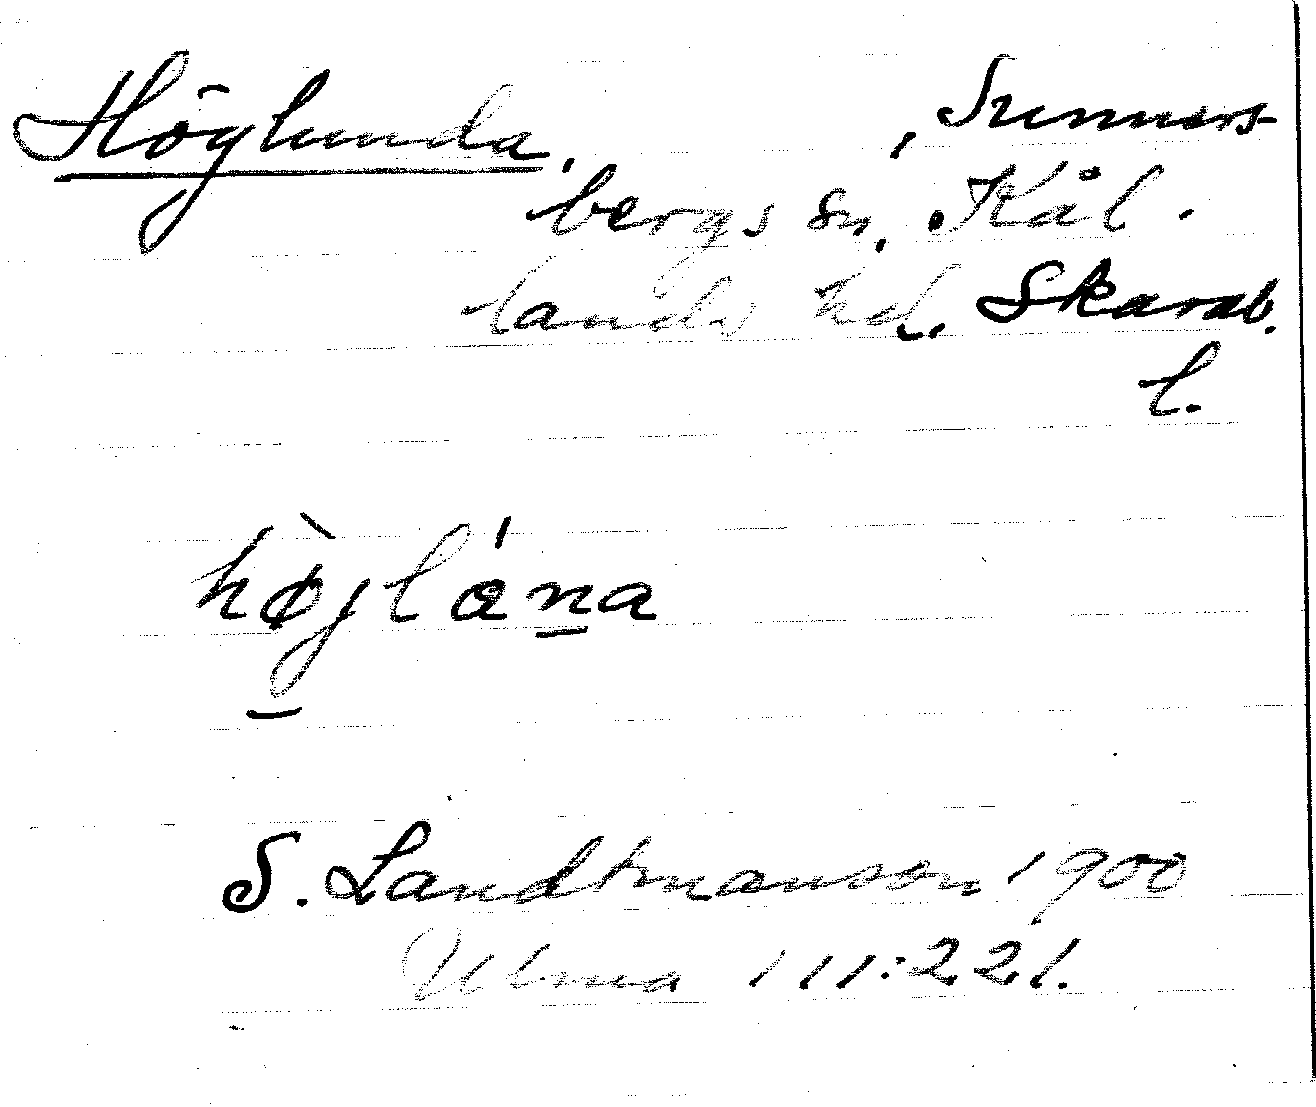 Höglunda, , Sunners-
bergs sn, Kål-
lands hd, Skarab.
l.
hø̀jlána
S. Landtmanson 1900
Ulma 111:221.